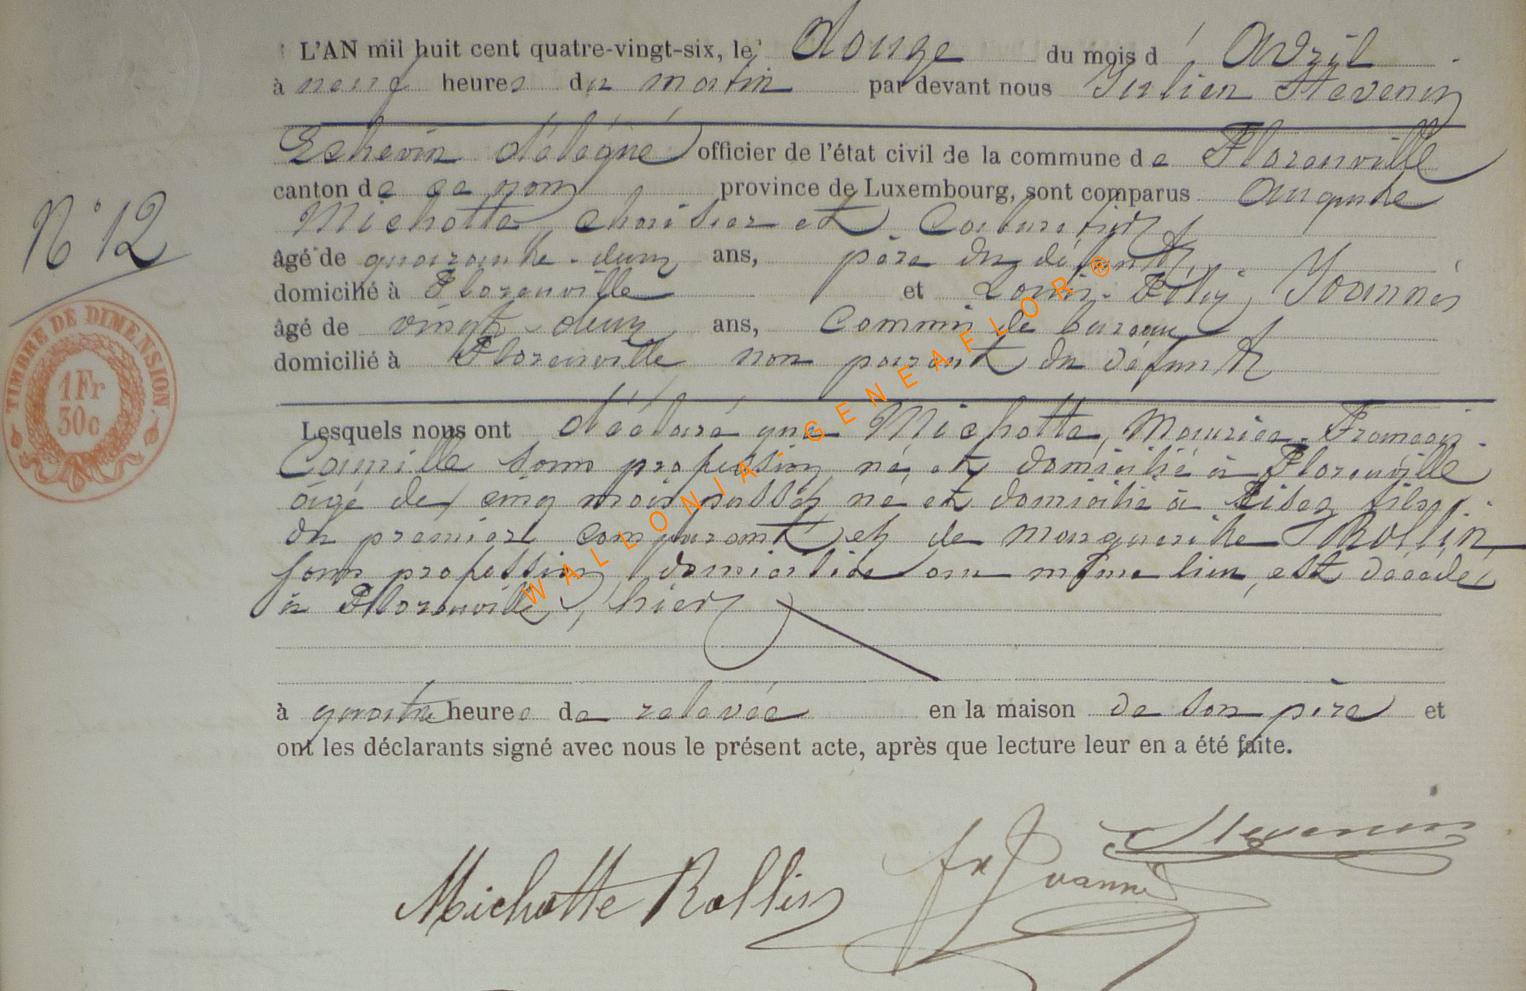 L'AN mil huit cent quatre-vingt-six, le douze du mois d' Avril
à neuf heures du matin par devant nous Julien Stevenin
Echevin délégué officier de l'état civil de la commune de Florenville
canton de ce nom province de Luxembourg, sont comparus Auguste
Michotte, et
âgé de quarante-deux ans, père du défunt
domicilié à Florenville et Louis-Félix, Joannès
N° 12
âgé de vingt-deux ans, Commis de bureau
domicilié à Florenville non parent du défunt
TIMBRE DE DIMENSION
1 Fr
30c
Lesquels nous ont déclaré que Michotte, Maurice-François-
Camille sans profession né et domicilié à Florenville
âgé de cinq mois passés né et domicilié à fils
du premier comparant et de Marguerite Rollin
sans profession domiciliée au même lieu, est décédé
à Florenville, hier
à quatre heures de relevée en la maison de son père et
ont les déclarants signé avec nous le présent acte, après que lecture leur en a été faite.
WALLONIA - GENEAFLOR ®
Stevenin
Michotte Rollin Joannès